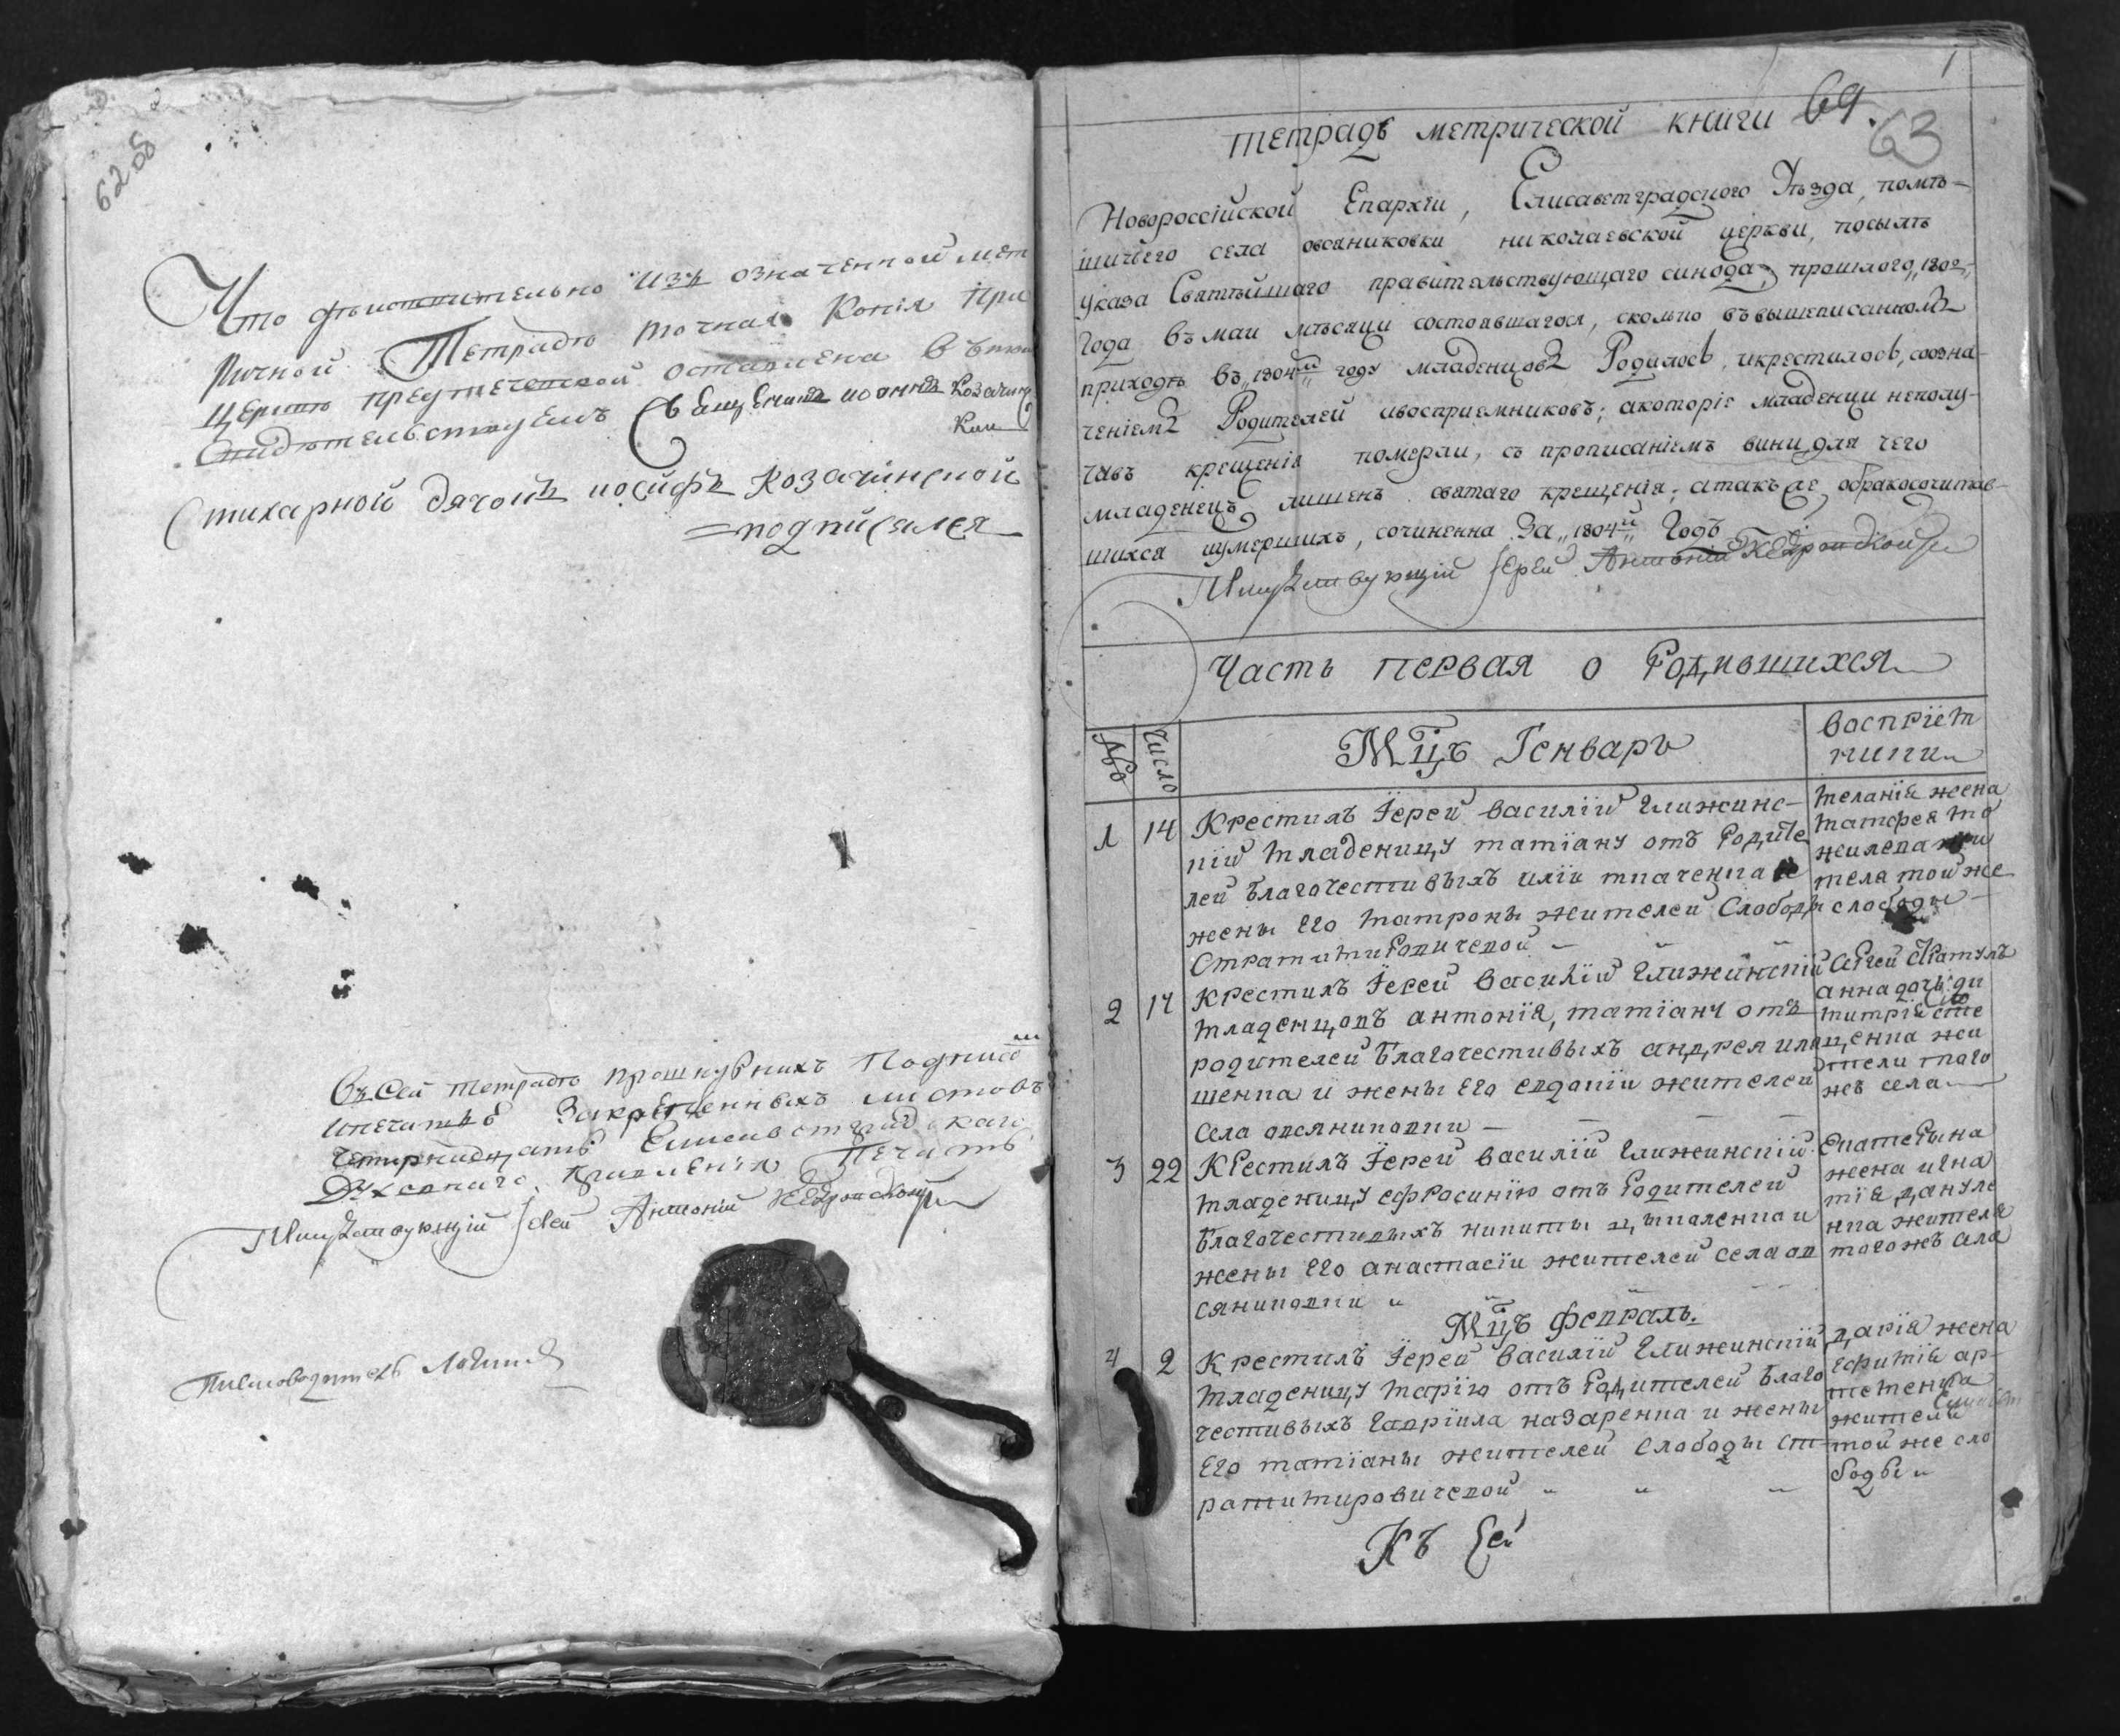 62об
Что действительно изъ означенной мет
ричной Тетрадѣ точная Копія При
церкви предтеченской оставлена въ томъ
Свидѣтельствуемъ Священникъ иоаннъ Козачинс
кии
Стихарной дячокъ иосифъ Козачинской
подписался
Въ сей тетрадѣ прошнурныхъ подписомъ
ипечатью Закрепленныхъ листовъ
четырнадцать Елисаветградскаго
Духовнаго правленія Печать
Присудствующій Іерей Антоній
Писмоводитель
1
69.
63
Тетрадь метрической книги
Новороссійской Епархіи, Елисаветградского Уѣзда, помѣ-
щичьего села овсяниковки николаевской церкви, посылѣ
указа Святѣйшаго правительствующаго синода, прошлого „1802„
года въ маи мѣсяци состоявшагося, сколько въвышеписанномъ
приходѣ въ „1804м„ году младенцовъ Родилось, икрестилось, созна-
ченіемъ Родителей ивосприемниковъ; акоторіе младенци неполу-
чавъ крещенія померли, съ прописаніемъ вини для чего
младенецъ лишенъ святаго крещенія; атакъже обракосочитав-
шихся иумершихъ, сочиненна За „1804й„ Годъ
Присудствующій Іерей Антоній
Часть первая о Родившихся
№
число
Мцъ Генварь
воспріем
ники
1 14 Крестилъ Іерей василій Глижинс-
кій младеницу татіану отъ Родите
лей благочестивыхъ иліи ткаченка и
жены его матроны жителей Слободы
Стратимировичевой
меланія жена
матфея мо
жителя той же
слободы
2 17 Крестилъ Іерей василій Глижинскій
младенцовъ антонія, татіану отъ
родителей благочестивыхъ андрея или
щенка и жены его евдокіи жителей
села овсяниковки
Сергей
анна дочь ди
митрія
ценка жи
тели того
жъ села
3 22 Крестилъ Іерей василій Глижинскій
младеницу ефросинію отъ Родителей
благочестивыхъ никиты цыкаленка и
жены его анастасіи жителей села ов
сяниковки
Екатерына
жена игна
тія даниле
нка жителя
тогожъ села
Мцъ февраль.
4 2 Крестилъ Іерей василій Глижинскій
младеницу марію отъ Родителей благо
честивыхъ гавріила назаренка и жены
его татіаны жителей слободы ст-
ратимировичевой
дарія жена
ефимія ар-
теменка
жителя
той же сло
боды
Къ Сей